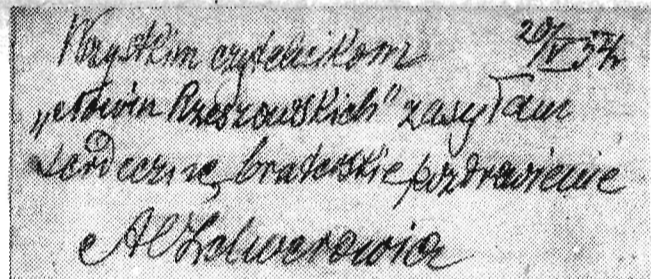 Wszystkim czytelnikom 20/V 54r
„Nowin Rzeszowskich" zasyłam
serdeczne, braterskie pozdrowienie
Al Zelwerowicz